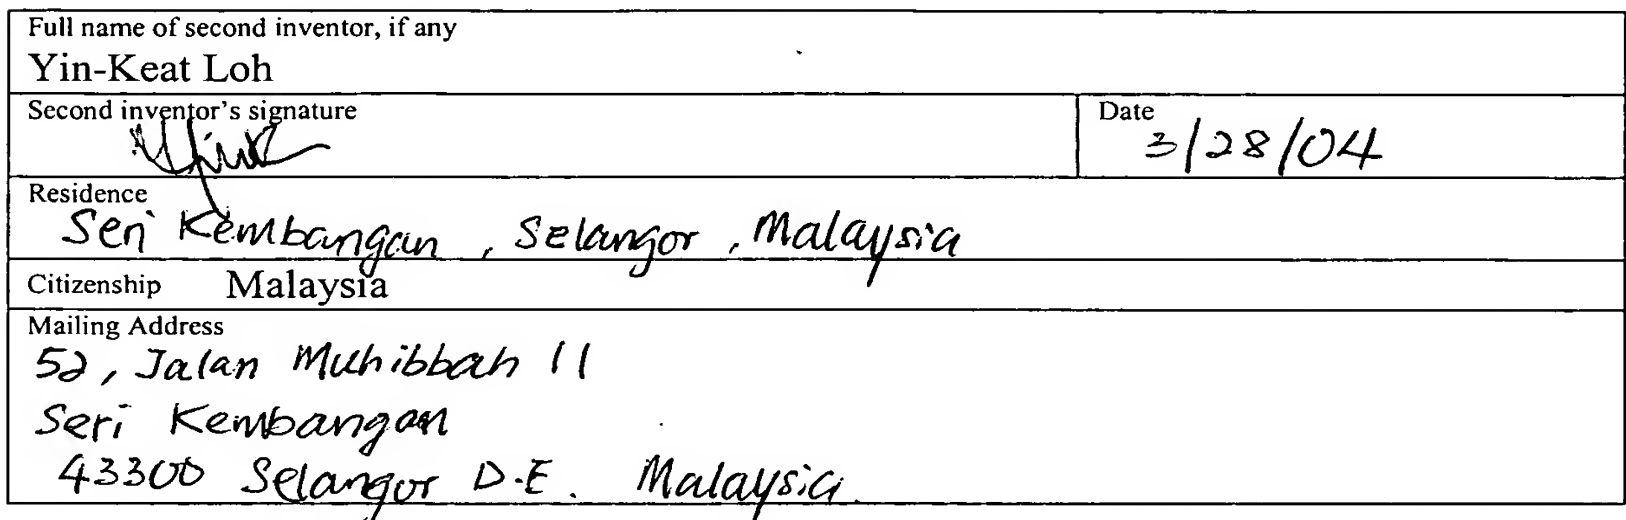 Full name of second inventor, if any
Yin-Keat Loh
Second inventor's signature
Date
3/28/04
Residence
Seri Kembangan, Selangor, Malaysia
Citizenship Malaysia
Mailing Address
52, Jalan Muhibbah 11
Seri Kembangan
43300 Selangor D.E. Malaysia.